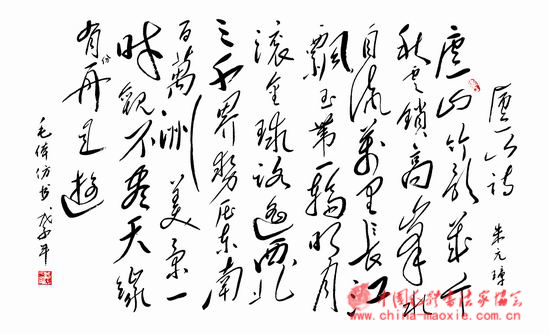 廬山诗
朱元璋
廬山竹影幾千
秋雲鎖高峰水
自流萬里長江
飄玉帶一輪明月
滚金球路遥西北
三千界势压東南
百萬洲美景一
時觀不盡天缘
有份再来遊
毛体仿书戊子年
中国毛体书法家协会
www.china-maoxie.com